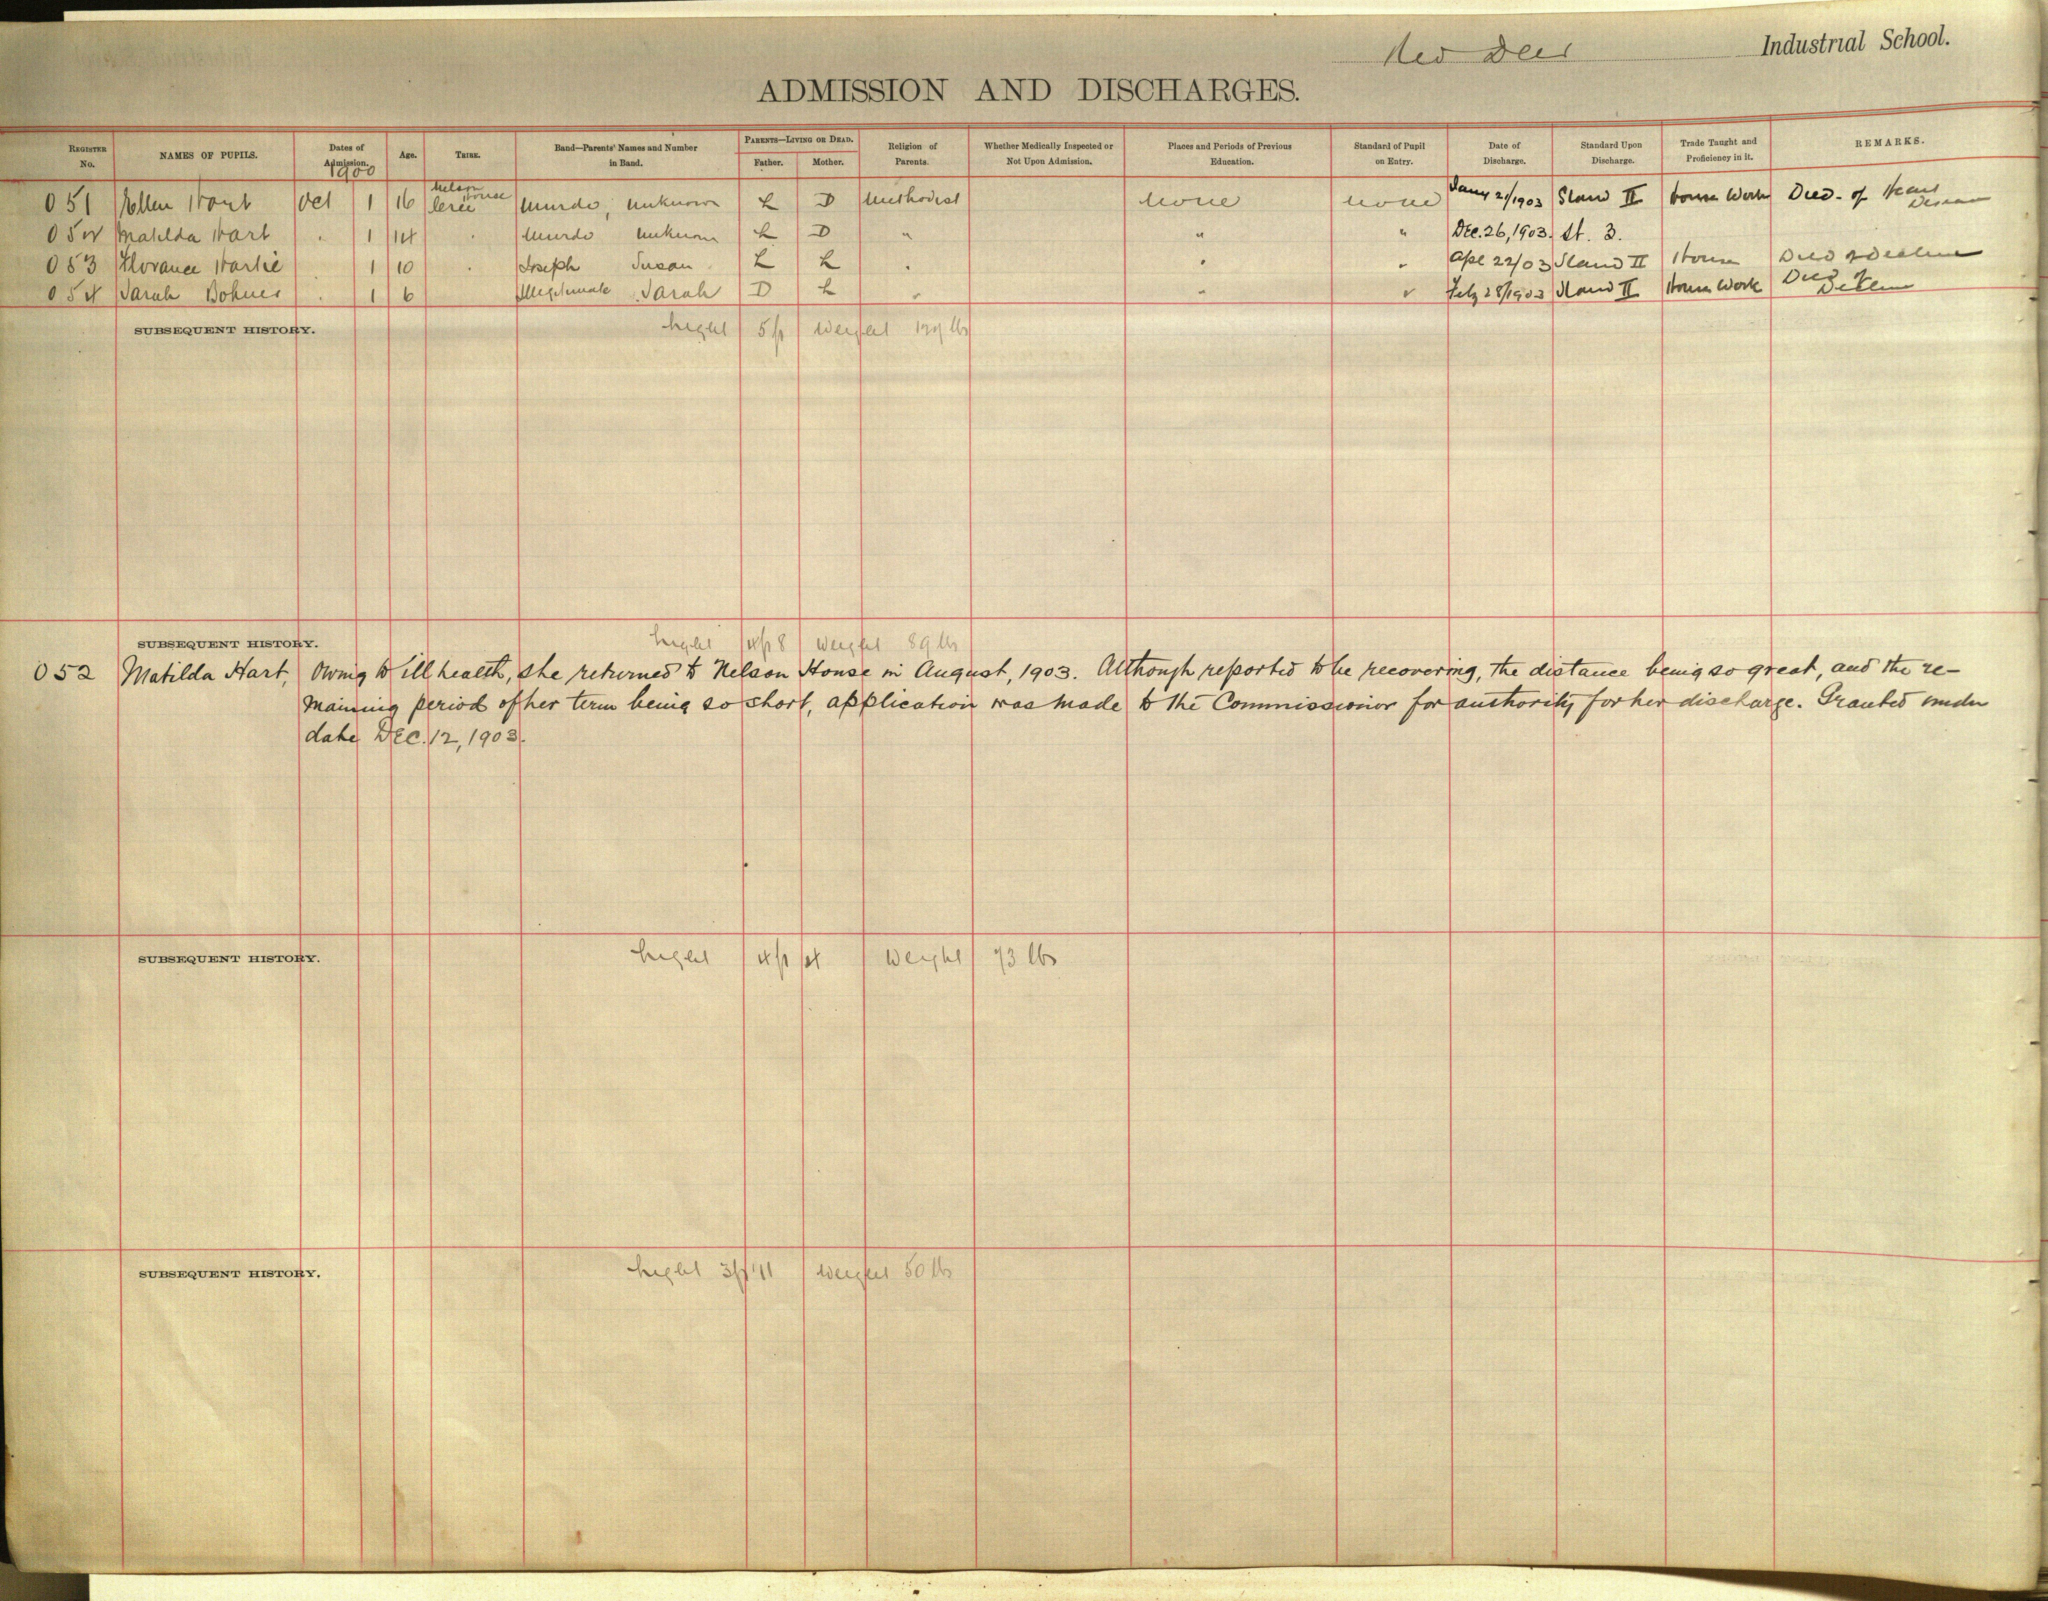 Red Deer Industrial School.
ADMISSION AND DISCHARGES.
REGISTER No. NAMES OF PUPILS. Dates of Admission. 1900 Age. TRIBE. Band—Parents' Names and Number in Band. PARENTS—LIVING OR DEAD. Father. Mother. Religion of Parents. Whether Medically Inspected or Not Upon Admission. Places and Periods of Previous Education. Standard of Pupil on Entry. Date of Discharge. Standard Upon Discharge. Trade Taught and Proficiency in it. REMARKS.
051 Ellen Hart Oct 1 16 Nelson House Cree Murdo, unknown L D Methodist None None Jany 21/1903 Stand II House Work Died - of Heart Disease
052 Matilda Hart . 1 14 . Murdo unknown L D " " " Dec. 26, 1903. St. 3.
053 Florance . 1 10 . Joseph Susan L L " " " Apl 22/03 Stand II House Died of Decline
054 Sarah . 1 6 Illegitimate Sarah D L " " " Feby 28/1903 Stand II House Work Died of Decline
SUBSEQUENT HISTORY. hight 5 ft weight lbs
SUBSEQUENT HISTORY. hight 4 ft 8 weight 89 lbs
052 Matilda Hart, Owing to ill health, she returned to Nelson House in August, 1903. Although reported to be recovering, the distance being so great, and the re-
maining period of her term being so short, application was made to the Commissionior for authority for her discharge. Granted under
date Dec. 12, 1903.
SUBSEQUENT HISTORY. hight 4 ft 4 weight 73 lbs
SUBSEQUENT HISTORY. hight 3 ft 11 weight 50 lbs